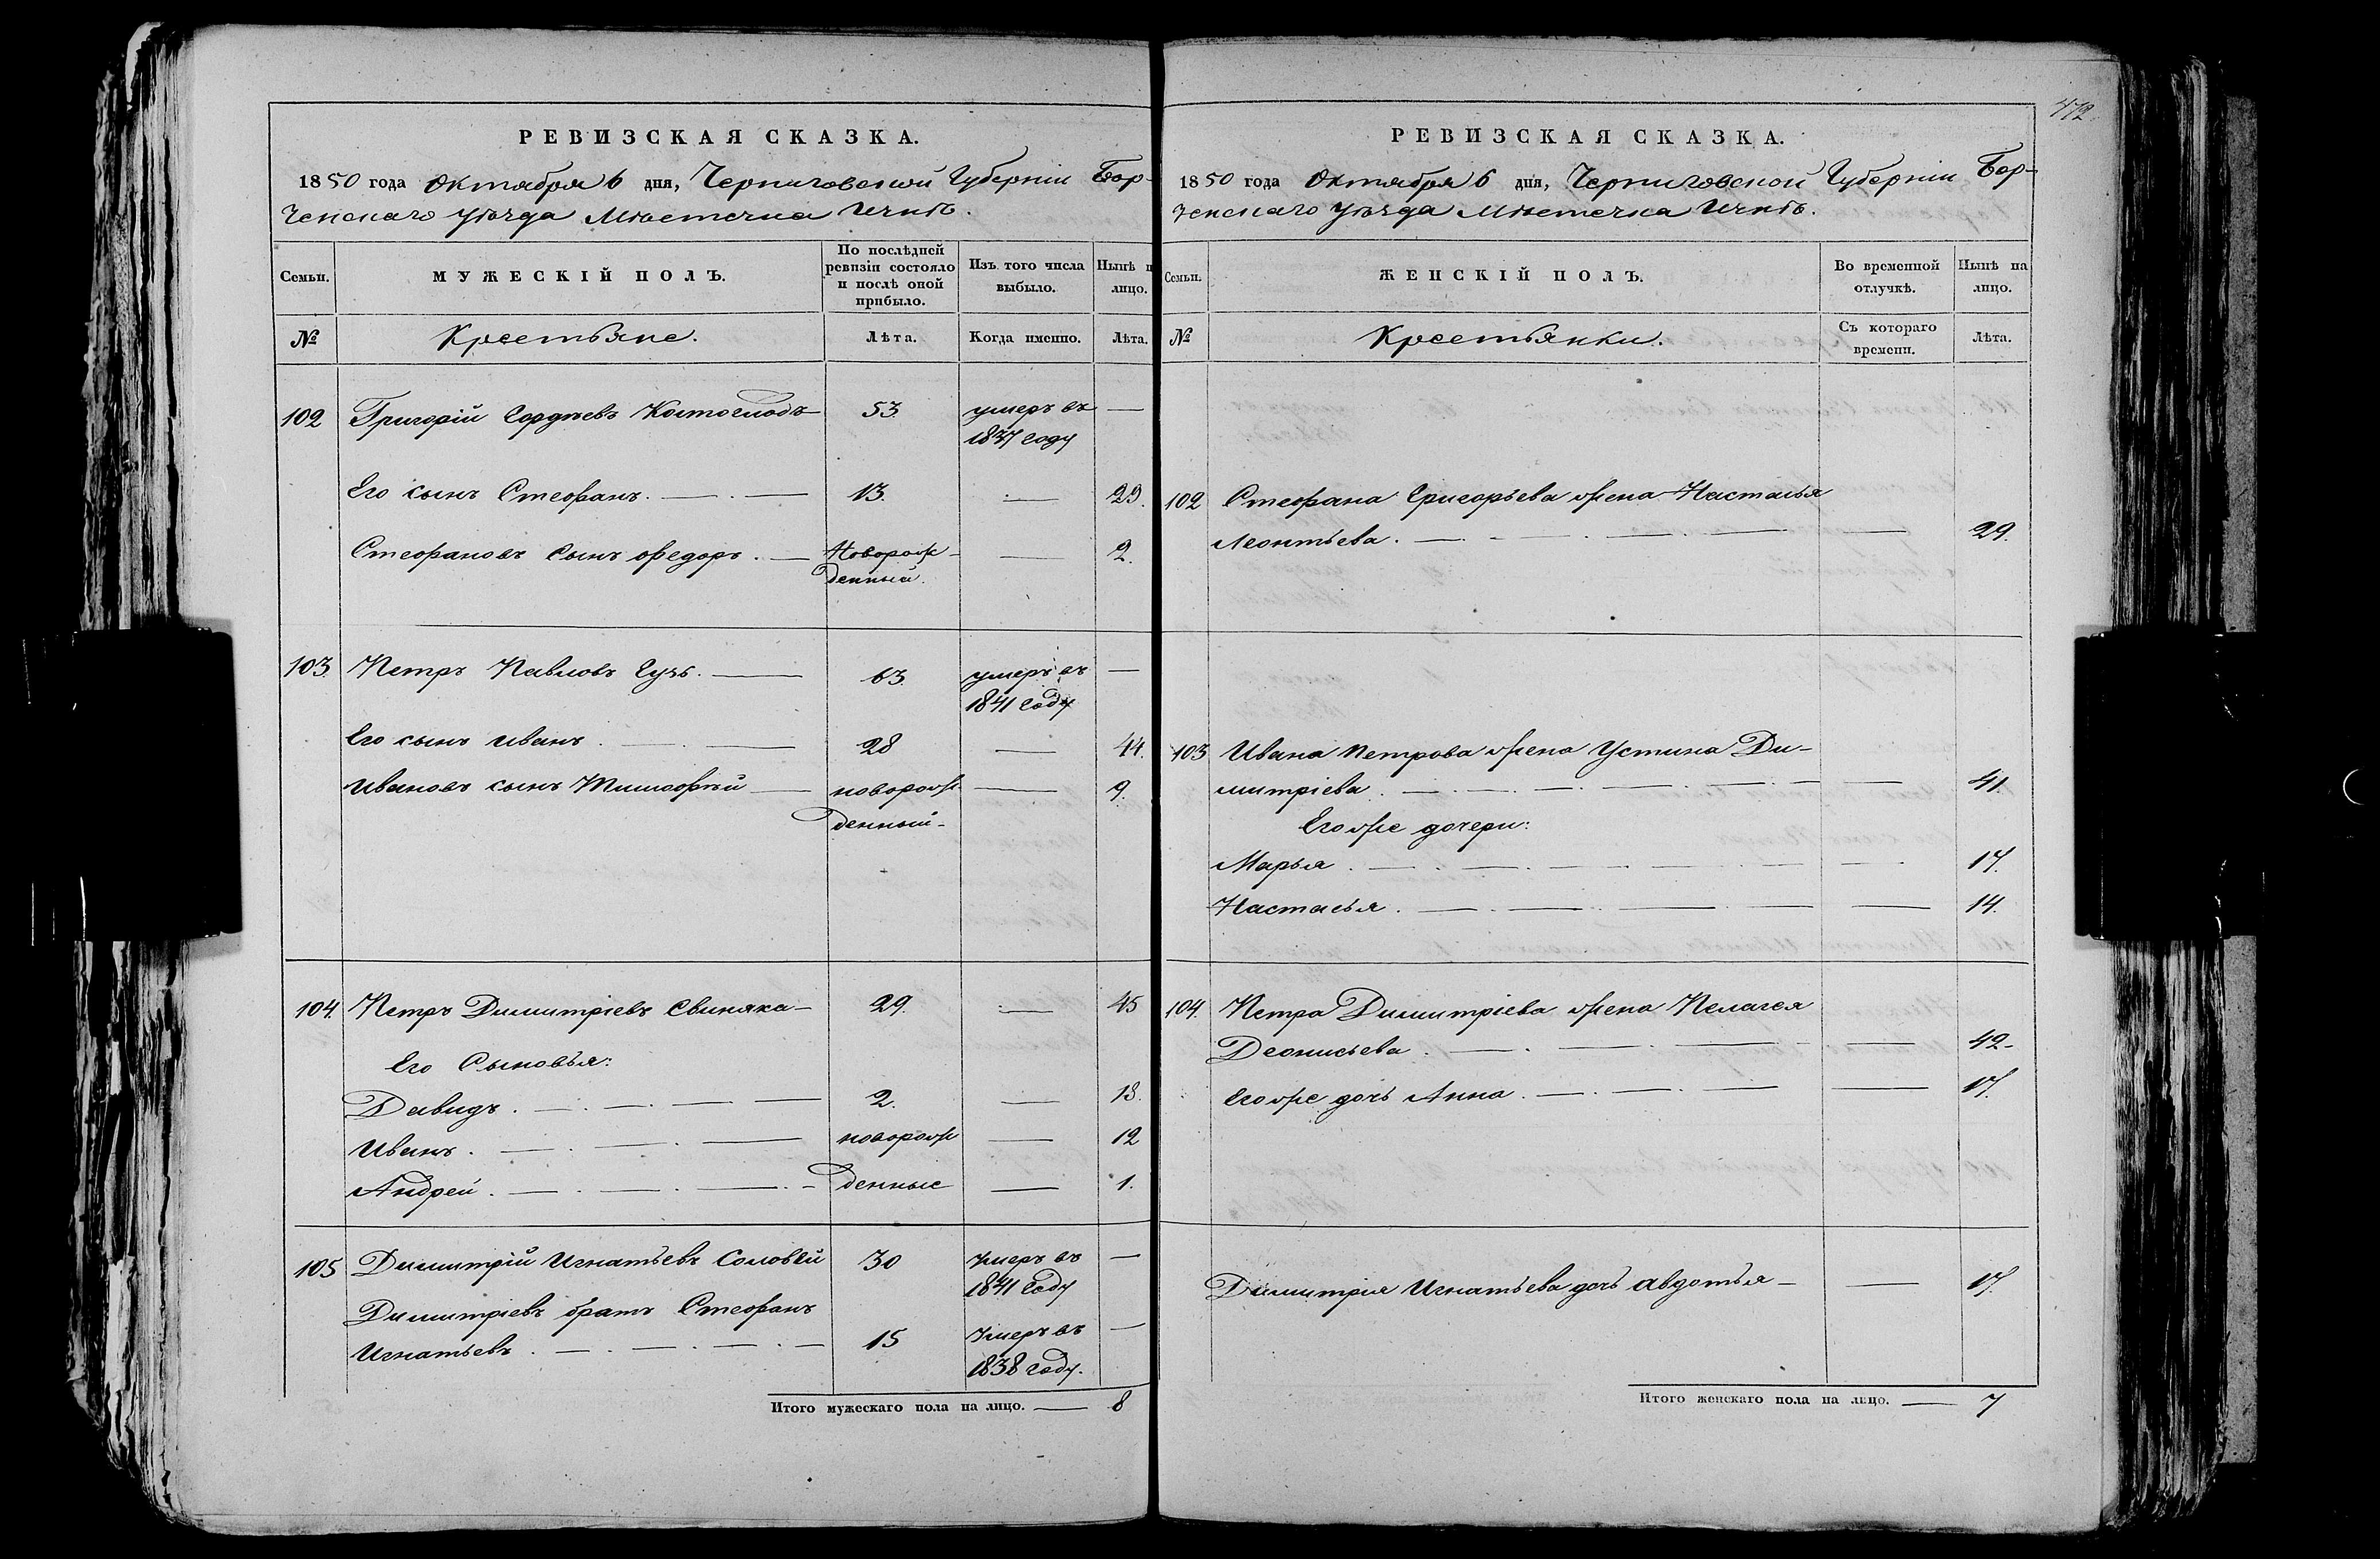 РЕВИЗСКАЯ СКАЗКА.
1850 года Октября 6 дня, Черниговской Губерніи Бор-
зенскаго уѣзда Мѣстечка Ичнѣ.
Семьи. МУЖЕСКІЙ ПОЛЪ. По послѣдней ревизіи состояло и послѣ оной прибыло. Изъ того числа выбыло. Нынѣ н лицо.
№ Крестьяне. Лѣта. Когда именно. Лѣта.
102 Григорій Гордѣевъ 53. умеръ въ —
1837 году
Его сынъ Стефанъ. — . — 13. — 29.
Стефановъ сынъ Федоръ. — Новорож- — 2.
денный.
103. Петръ Павловъ Гузь. — 63. умеръ въ —
1841 году
Его сынъ Иванъ. — . — 28 — 44.
Ивановъ сынъ Тимофѣй — новорож — 9.
денный-
104. Петръ Димитріевъ Свиняка — 29. — 45
Его Сыновья:
Давидъ. — . — . — — 2. — 18.
Иванъ. — . — . — новорож — 12
Андрей. — . — . — . – денные — 1.
105 Димитрій Игнатьевъ Соловей 30 Умеръ въ —
1841 году
Димитріевъ братъ Стефанъ
Игнатьевъ. — . — . — . — 15 Умеръ въ —
1838 году.
Итого мужескаго пола на лицо. — 8
472
РЕВИЗСКАЯ СКАЗКА.
1850 года Октября 6 дня, Черниговской Губерніи Бор-
зенскаго уѣзда Мѣстечка Ичнѣ.
Семьи. ЖЕНСКІЙ ПОЛЪ. Во временной отлучкѣ. Нынѣ на лицо.
№ Крестьянки. Съ котораго времени. Лѣта.
102 Стефана Григорьева жена Настасья
Леонтьева. — . — . — . — — 29.
103 Ивана Петрова жена Устина Ди-
митріева. — . — . — . — — 41.
Его же дочери:
Марья. — . — . — . — — 17.
Настасья. — . — . — . — — 14.
104. Петра Димитріева жена Пелагея
Деонисьева. — . — . — — 42-
Его же дочь Анна. — . — . — — 17.
Димитрія Игнатьева дочь Авдотья — — 17.
Итого женскаго пола на лицо. — 7